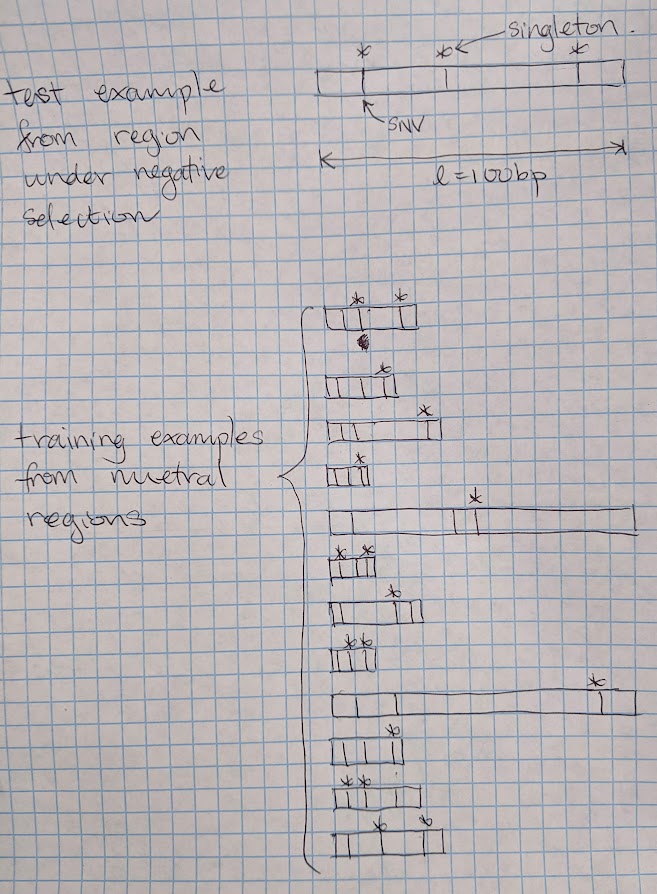 singleton.
* * *
test example
from region
under negative
selection
SNV
l=100bp
* *
*
*
training examples
from nuetral
regions
*
*
* *
*
* *
*
*
* *
* *